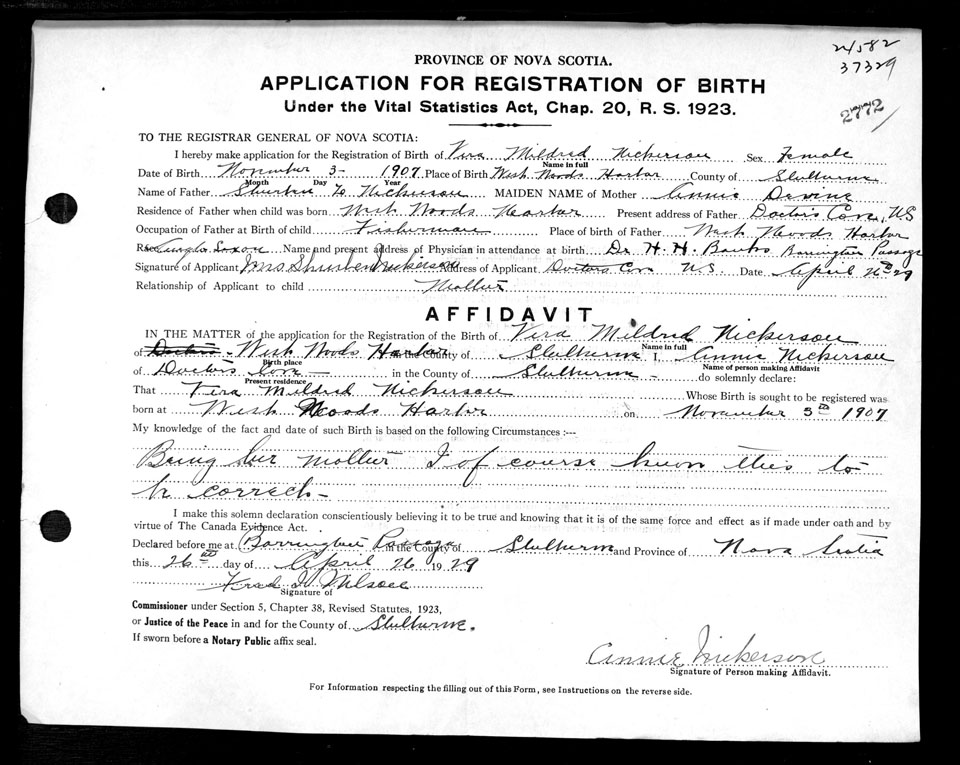 24582
37329
2772
PROVINCE OF NOVA SCOTIA.
APPLICATION FOR REGISTRATION OF BIRTH
Under the Vital Statistics Act, Chap. 20, R. S. 1923.
TO THE REGISTRAR GENERAL OF NOVA SCOTIA:
I hereby make application for the Registration of Birth of Vera Mildred Nickerson Sex Female
Name in full
Date of Birth November 3- 1907 Place of Birth West Woods Harbor County of Shelburne
Month Day Year
Name of Father Nickerson MAIDEN NAME of Mother Annie Devine
Residence of Father when child was born West Woods Harbor Present address of Father Doctors Cove, NS
Occupation of Father at Birth of child Fisherman Place of birth of Father West Woods Harbor
Race Anglo Saxon Name and present address of Physician in attendance at birth Dr H. H. Banks Barrington Passage
Signature of Applicant Mrs Nickerson Address of Applicant Doctors Cove NS. Date April 26th 29
Relationship of Applicant to child Mother
AFFIDAVIT
IN THE MATTER of the application for the Registration of the Birth of Vera Mildred Nickerson
Name in full
of Doctors West Woods Harbor County of Shelburne I, Annie Nickerson
Birth place Name of person making Affidavit
of Doctors Cove in the County of Shelburne do solemnly declare:
Present residence
That Vera Mildred Nickerson Whose Birth is sought to be registered was
born at West Woods Harbor on November 3rd 1907
My knowledge of the fact and date of such Birth is based on the following Circumstances :—
Being her mother I of course know this to
be correct-
I make this solemn declaration conscientiously believing it to be true and knowing that it is of the same force and effect as if made under oath and by
virtue of The Canada Evidence Act.
Declared before me at Barrington Passage in the County of Shelburne and Province of Nova Scotia
this 26th day of April 26 1929
Signature of
Commissioner under Section 5, Chapter 38, Revised Statutes, 1923,
or Justice of the Peace in and for the County of Shelburne.
If sworn before a Notary Public affix seal.
Annie Nickerson
Signature of Person making Affidavit.
For Information respecting the filling out of this Form, see Instructions on the reverse side.